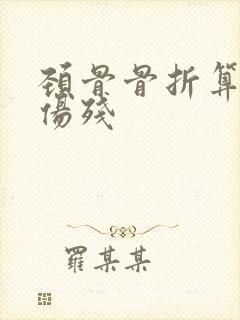 頚骨骨折算
傷殘
羅某某